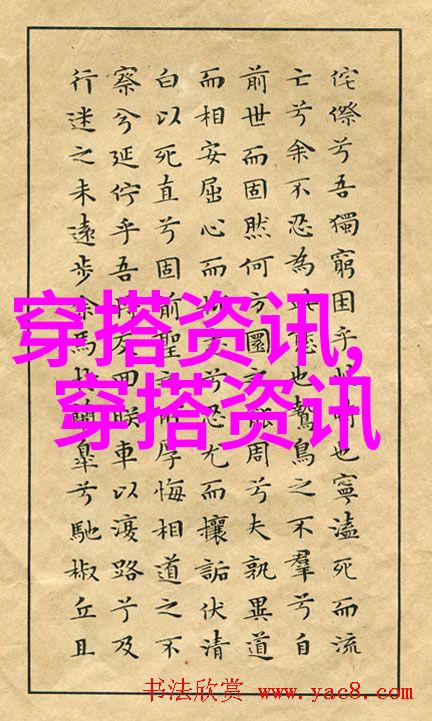 侘傺兮吾獨窮困乎時也寧溘死而流
亡兮余不忍為態也鷙鳥之不羣兮自
前世而固然何方圜之能周兮夫孰異道
而相安屈心而兮忍尤而攘詬伏清
白以死直兮固前聖之所厚悔相道之不
察兮延佇乎吾將反回朕車以復路兮及
行迷之未遠步余馬於蘭皋兮馳椒丘且
穿搭资讯,
穿搭资讯
书法欣赏 www.yac8.com